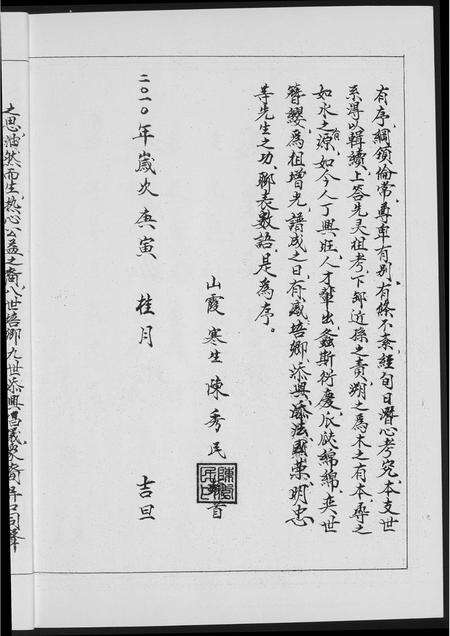 有序，綱領倫常，尊卑有别，有條不紊，經旬日潛心考究，本支世
系得以輯續，上答先灵祖考，下部近孫之責，朔之爲木之有本，尋之
如水之有源，如今人丁興旺，人才輩出，螽斯衍慶，瓜瓞綿綿，奕世
簪纓，爲祖增光，譜成之日，有感培卿、添興、添法、國荣、明忠
等先生之功，聊表數語，是爲序。
山霞 寒生 陳秀民 首
二〇一〇年歲次庚寅 桂月 吉旦
之思油然而生，熱心公益之裔，八世培卿、九世添興